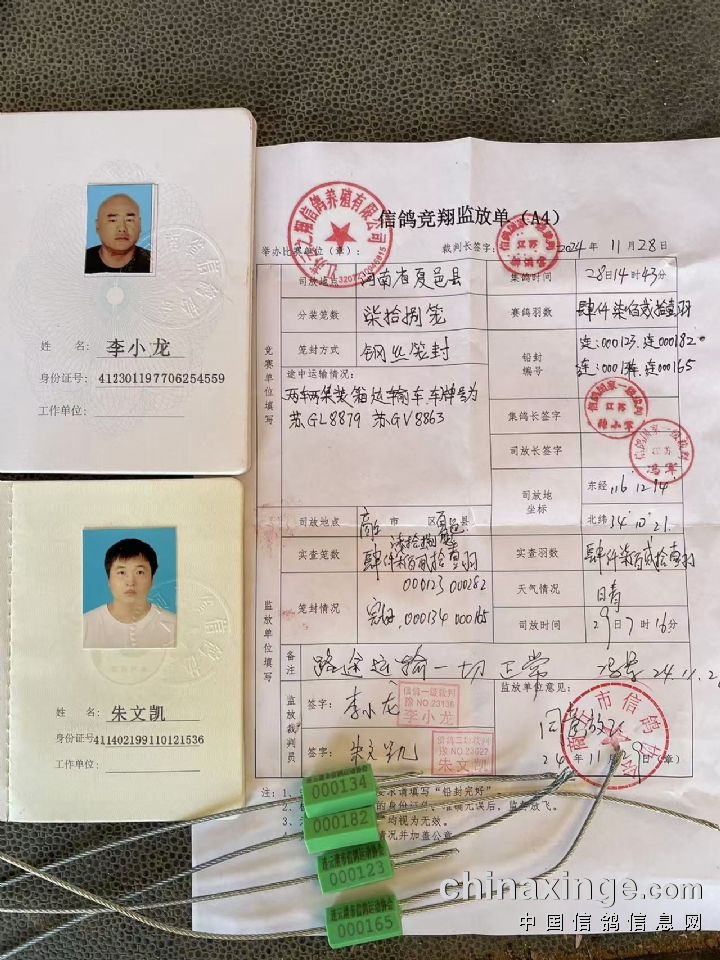 姓 名: 李小龙
身份证号: 412301197706254559
工作单位:
姓 名: 朱文凯
身份证号: 411402199110121536
工作单位:
翔信鸽养殖有限公司
信鸽竞翔监放单 (A4)
举办比赛单位(章): 裁判长签字: 2024 年 11 月 28 日
竞赛单位填写
司放地点 河南省夏邑县 集鸽时间 28日14时43分
分装笼数 柒拾捌笼 赛鸽羽数 肆仟柒佰贰拾壹羽
笼封方式 钢丝笼封 铅封编号 连:000123.连000182
连:000134.连000165
途中运输情况:
两车两集装箱运输车.车牌号为
苏GL8879 苏GV8863
集鸽长签字
司放长签字
司放地坐标 东经 116 12 14
北纬 34°10′21
监放单位填写
司放地点 商丘 市 区 夏邑 县
实查笼数 柒拾捌笼
肆仟柒佰贰拾壹羽 实查羽数 肆仟柒佰贰拾壹羽
笼封情况 000123 000182
完好.000134 000165
天气情况 晴
司放时间 29日7时16分
备注 路途运输一切正常
监放裁判员
签字: 李小龙
信鸽一级裁判
豫 NO 23136
李小龙
签字: 朱文凯
信鸽二级裁判
豫 NO 23027
朱文凯
监放单位意见:
同意放飞
24 年 11 月 29 日 (章)
市信鸽协会
注: 1、
请填写“铅封完好”
2、
的身份证号、准确无误后,监督放飞。
3、
均视为无效。
4、
情况并加盖公章
000134
000182
连云港市信鸽运动协会
000123
连云港市信鸽运动协会
000165
chinaxinge.com
中国信鸽信息网